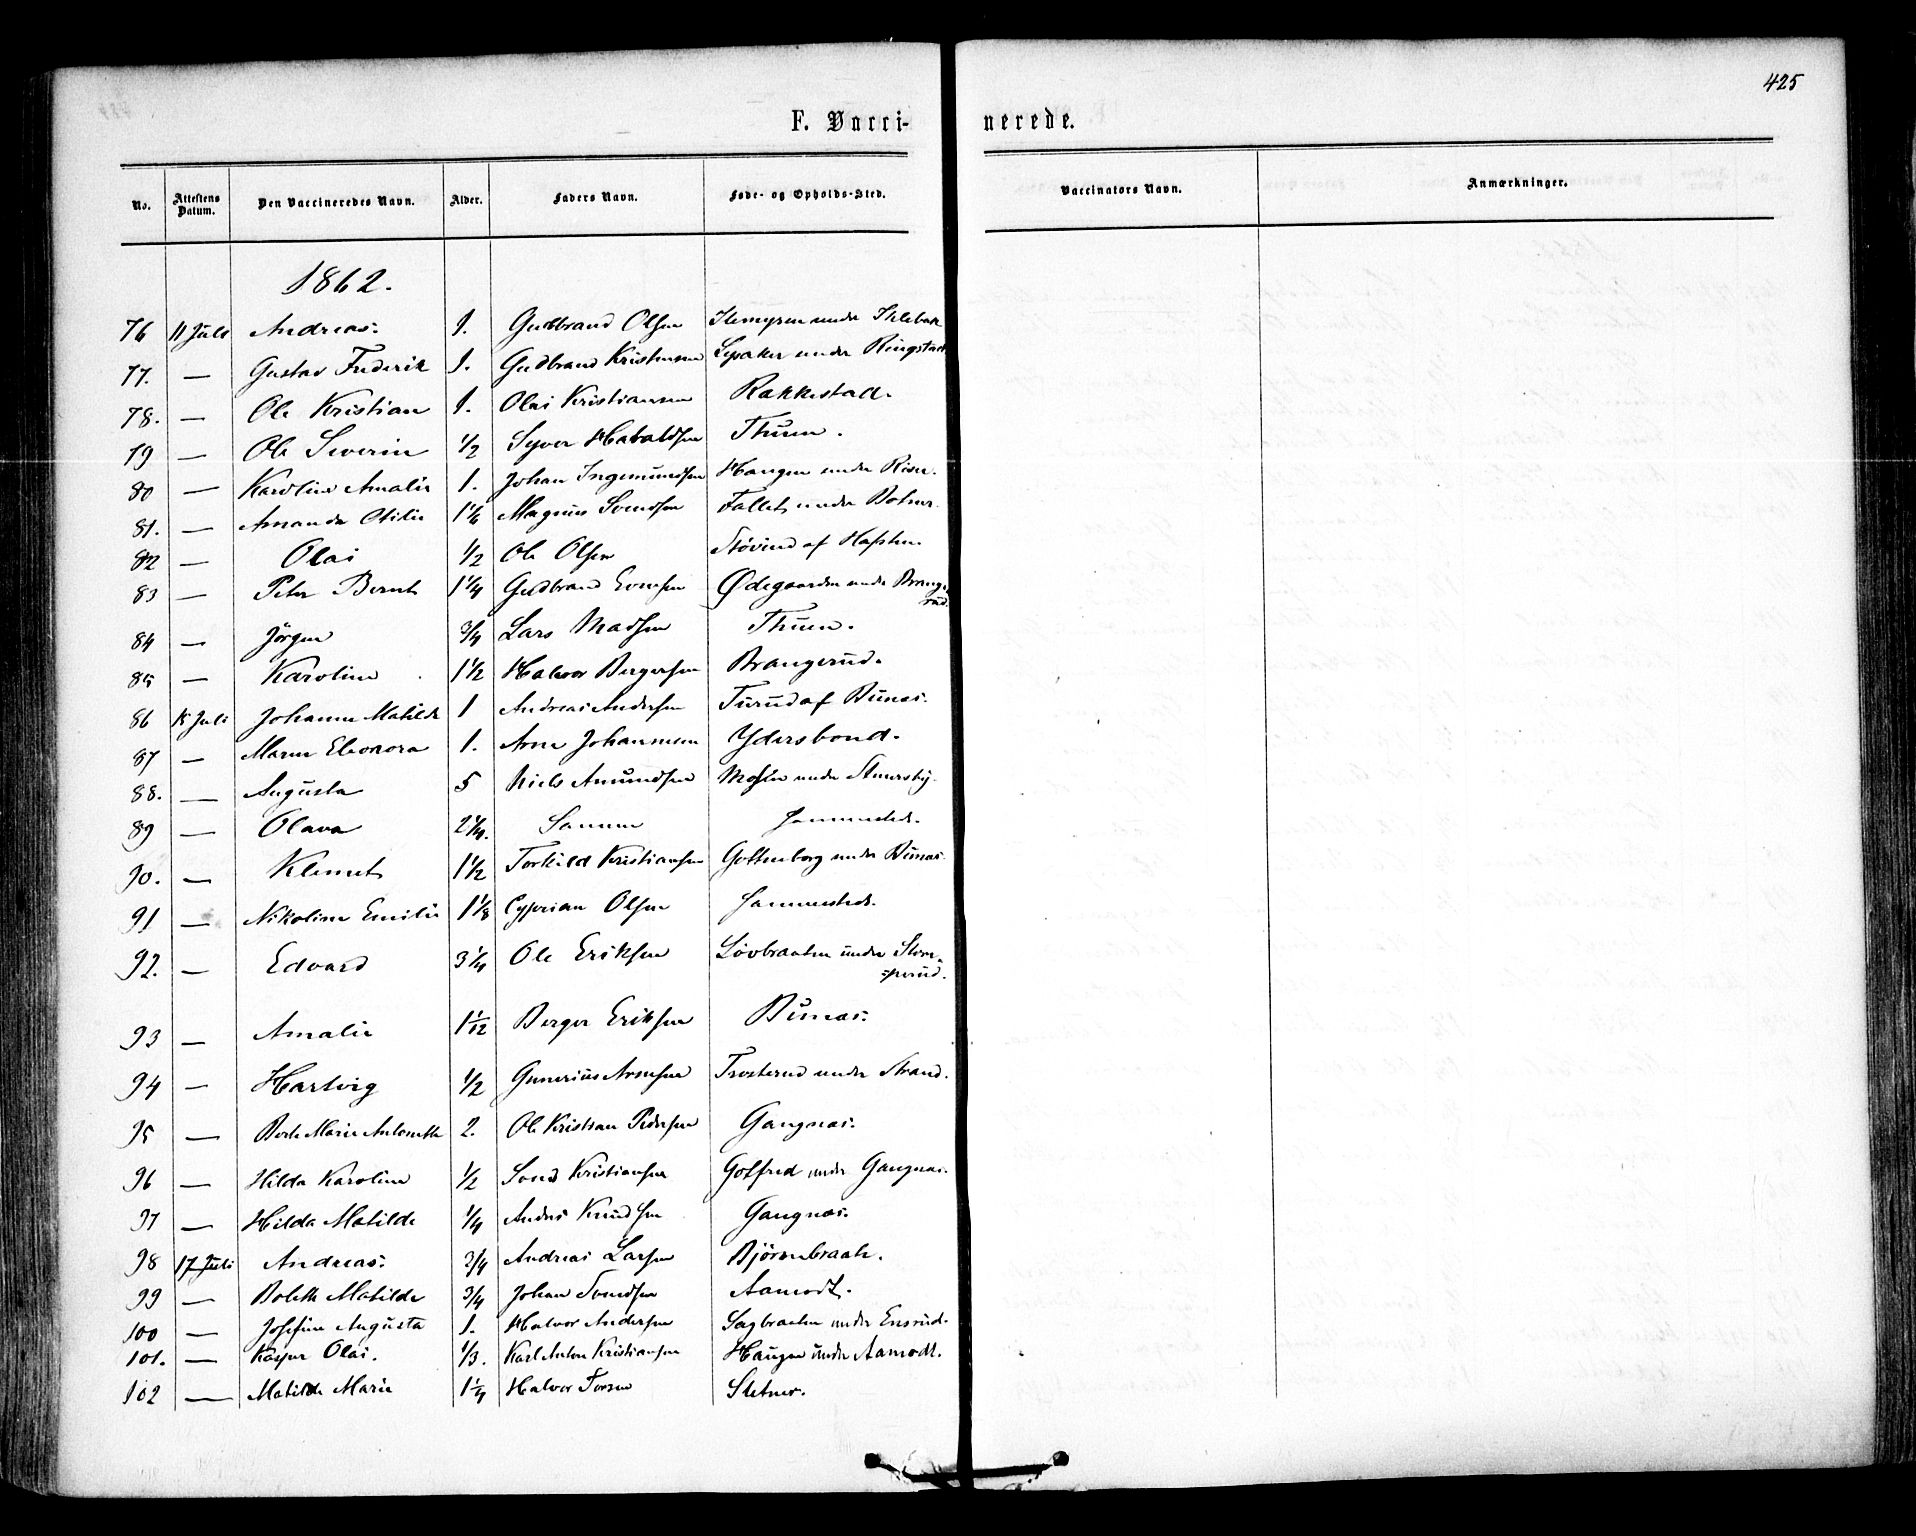 425
F. Vacci- nerede.
No. Attestens Datum. Den Vaccineredes Navn. Alder. Faders Navn. Føde- og Opholds-Sted. Vaccinators Navn. Anmærkninger.
1862.
76 11 Juli Andreas. 1. Gudbrand Olsen under
77. — Gustav Frederik 1. Gudbrand Kristensen under Ringstad
78. — Ole Kristian 1. Olai Kristiansen Rakkestad.
79 — Ole Severin 1/2 Syver Thuen.
80 — Karoline Amalie 1. Johan Ingemundsen Haugen under Riser.
81. — Amanda Otilie 1 1/6 Magnus Svendsen Fallet under Botner.
82 — Olai 1/2 Ole Olsen Støvind af Hafsten.
83 — Peter Bernt 1 1/4 Gudbrand Evensen Ødegaarden under Brange-
rud.
84 — Jörgen 3/4 Lars Madsen Thuen.
85 — Karoline 1 1/2 Halvor Bergersen Brangerud.
86 15 Juli Johanne Matilde 1 Andreas Andersen Turud af Bunæs.
87 — Maren Eleonora 1. Arne Johannesen Ydersbond.
88. — Augusta 5 Niels Amundsen Mosen under
89 — Olava 2 1/4. Samme Sammesteds.
90. — Klemet 1 1/2 Torkild Kristiansen Gottenborg under Bunæs.
91 — Nikoline Emilie 1 1/8 Cyprian Olsen Sammesteds.
92. — Edvard 3 1/4 Ole Eriksen Lövbraaten under Stom-
=perud.
93 — Amalie 1 1/12 Berger Eriksen Bunæs.
94 — Hartvig 1/2 Gunerius Arnesen Trosterud under Strand.
95 — Berte Marie Antonette 2. Ole Kristian Pedersen Gangnæs.
96 — Hilda Karoline 1/2 Kristiansen Gotfred under Gangnæs.
97 — Hilda Matilde 1/4 Anders Knudsen Gangnæs.
98 17 Juli Andreas. 3/4 Andreas Larsen Björnebraate.
99 — Bolette Matilde 3/4 Johan Svendsen Aamodt.
100 — Josefine Augusta 1. Halvor Andersen Sagbraaten under Ensrud.
101. — Kasper Olai. 1/3. Karl Anton Kristiansen Haugen under Aamodt.
102 — Matilde Marie 1 1/4 Halvor Torsen Sletner.